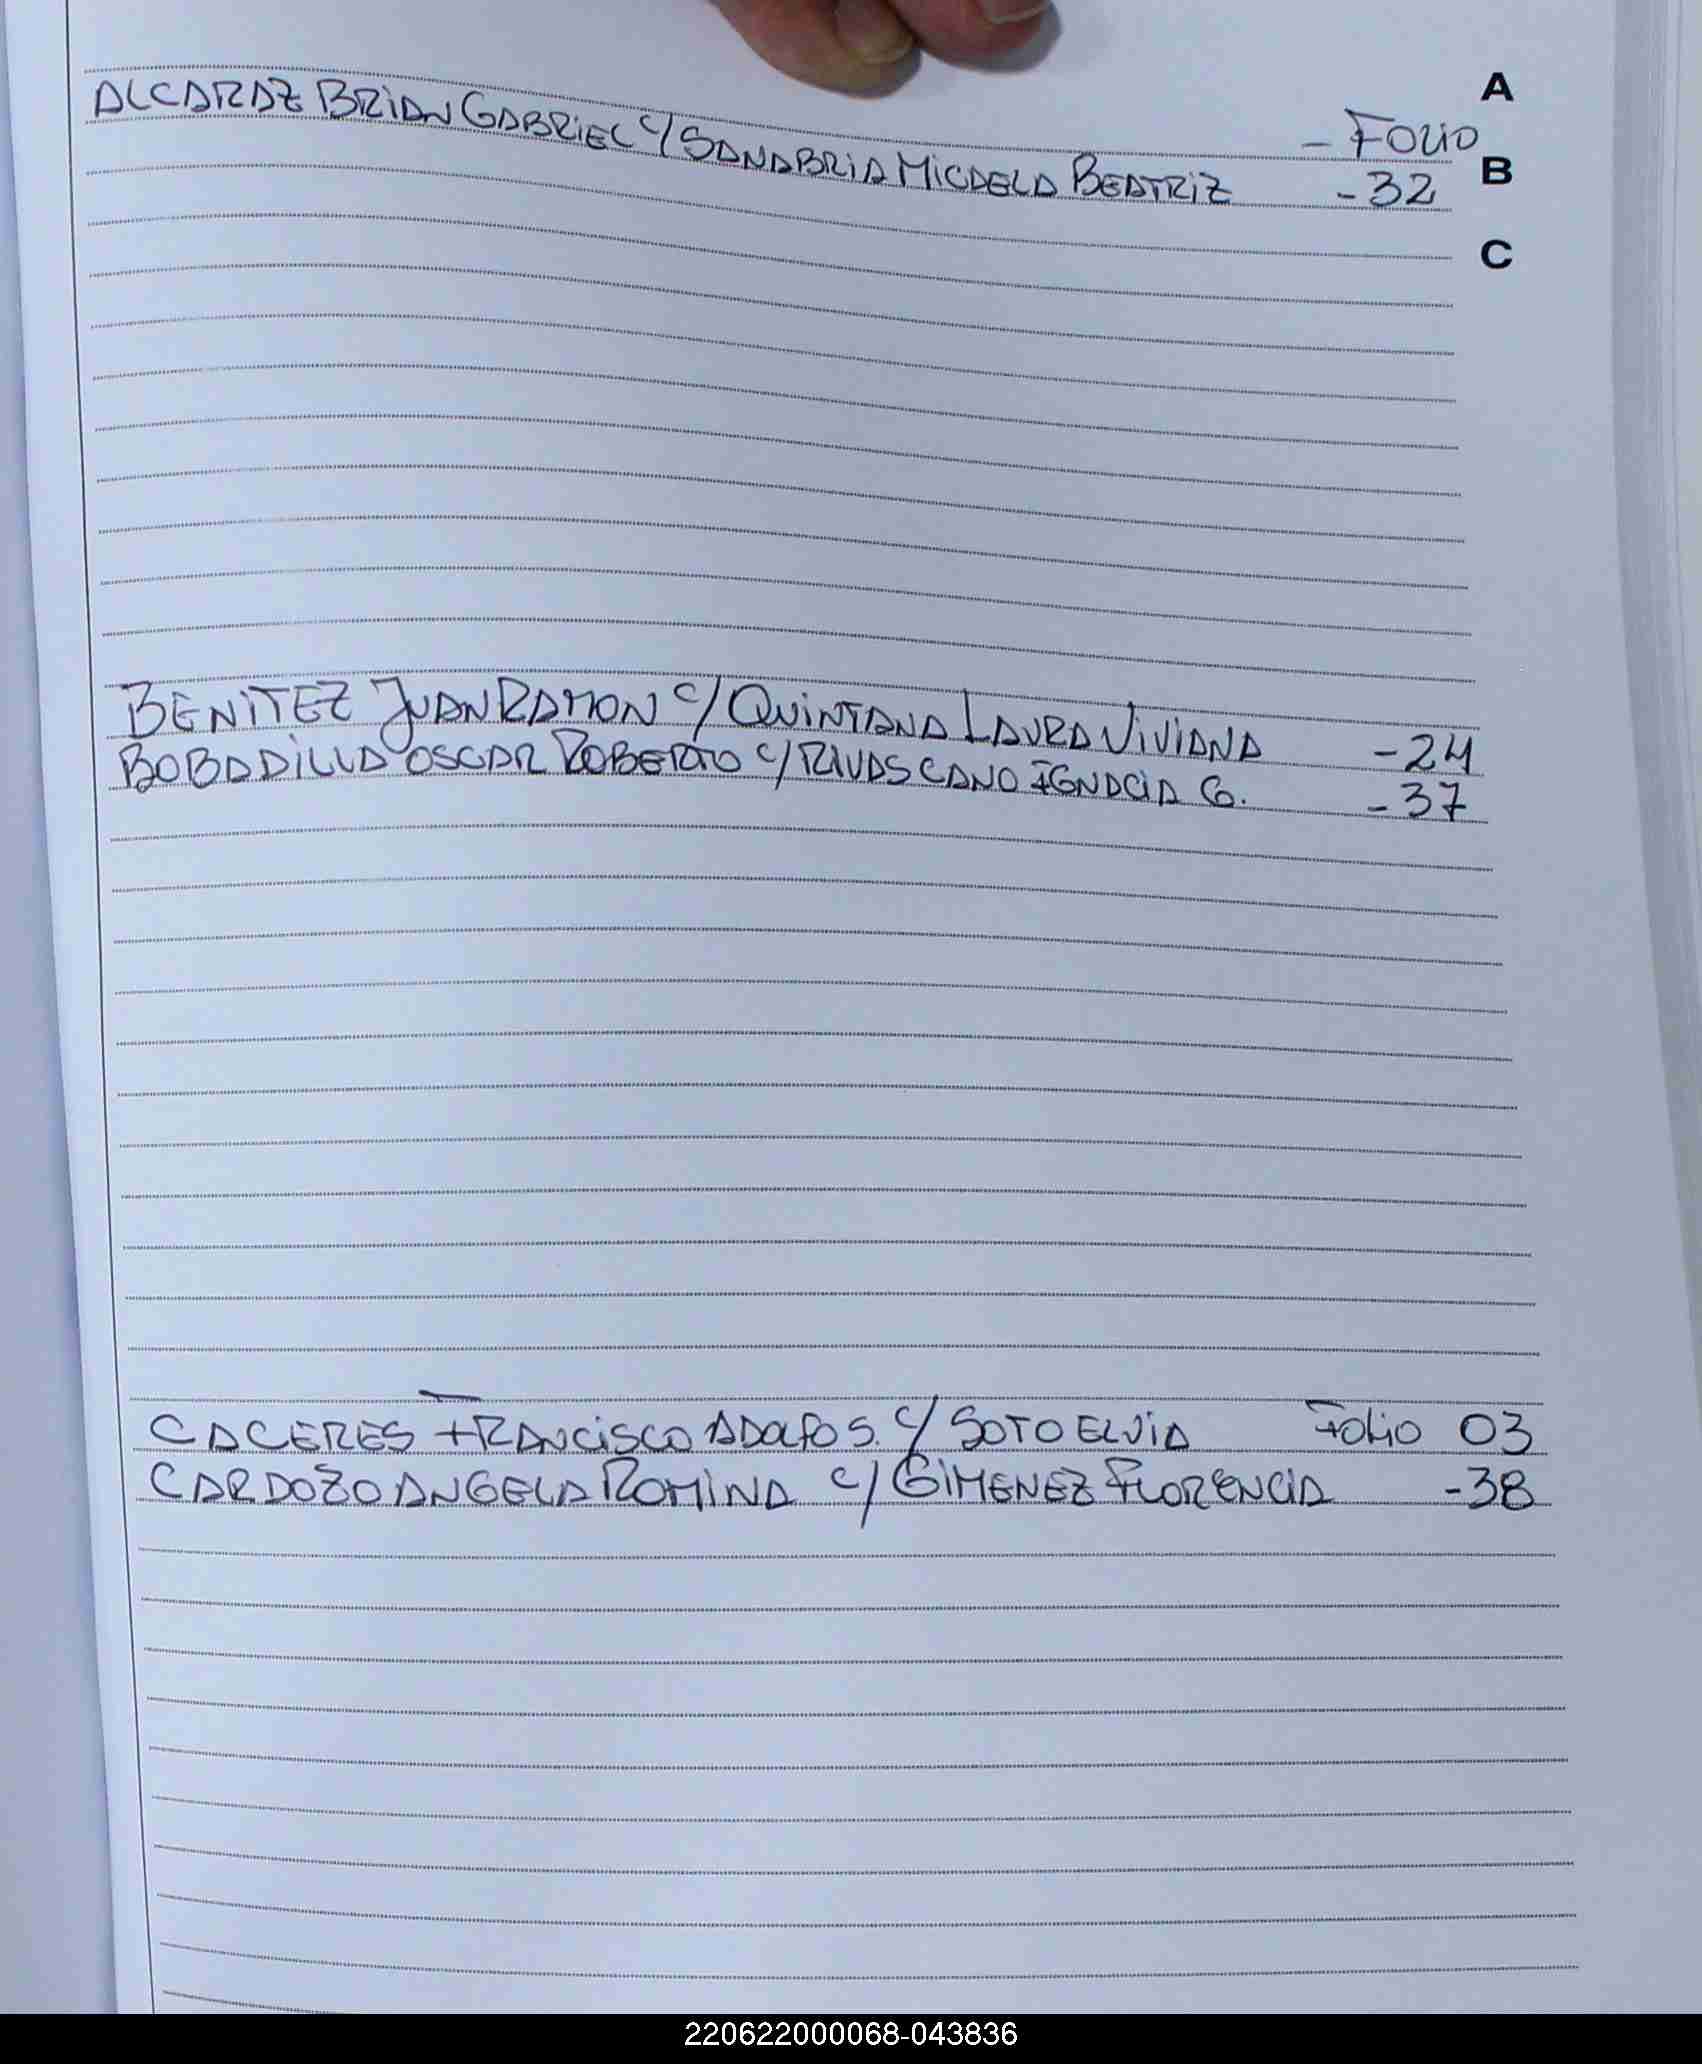 A
- Folio
ALCARAZ BRIAN GABRIEL C/ SANABRIA MICAELA BEATRIZ -32
B
C
BENITEZ JUAN RAMON C/ QUINTANA LAURA VIVIANA -24
BOBADILLA OSCAR ROBERTO C/ RIVAS CANO IGNACIA G. -37
CACERES FRANCISCO ADOLFO S. C/ SOTO ELVIA Folio 03
CARDOZO ANGELA ROMINA C/ GIMENEZ FLORENCIA -38
220622000068-043836